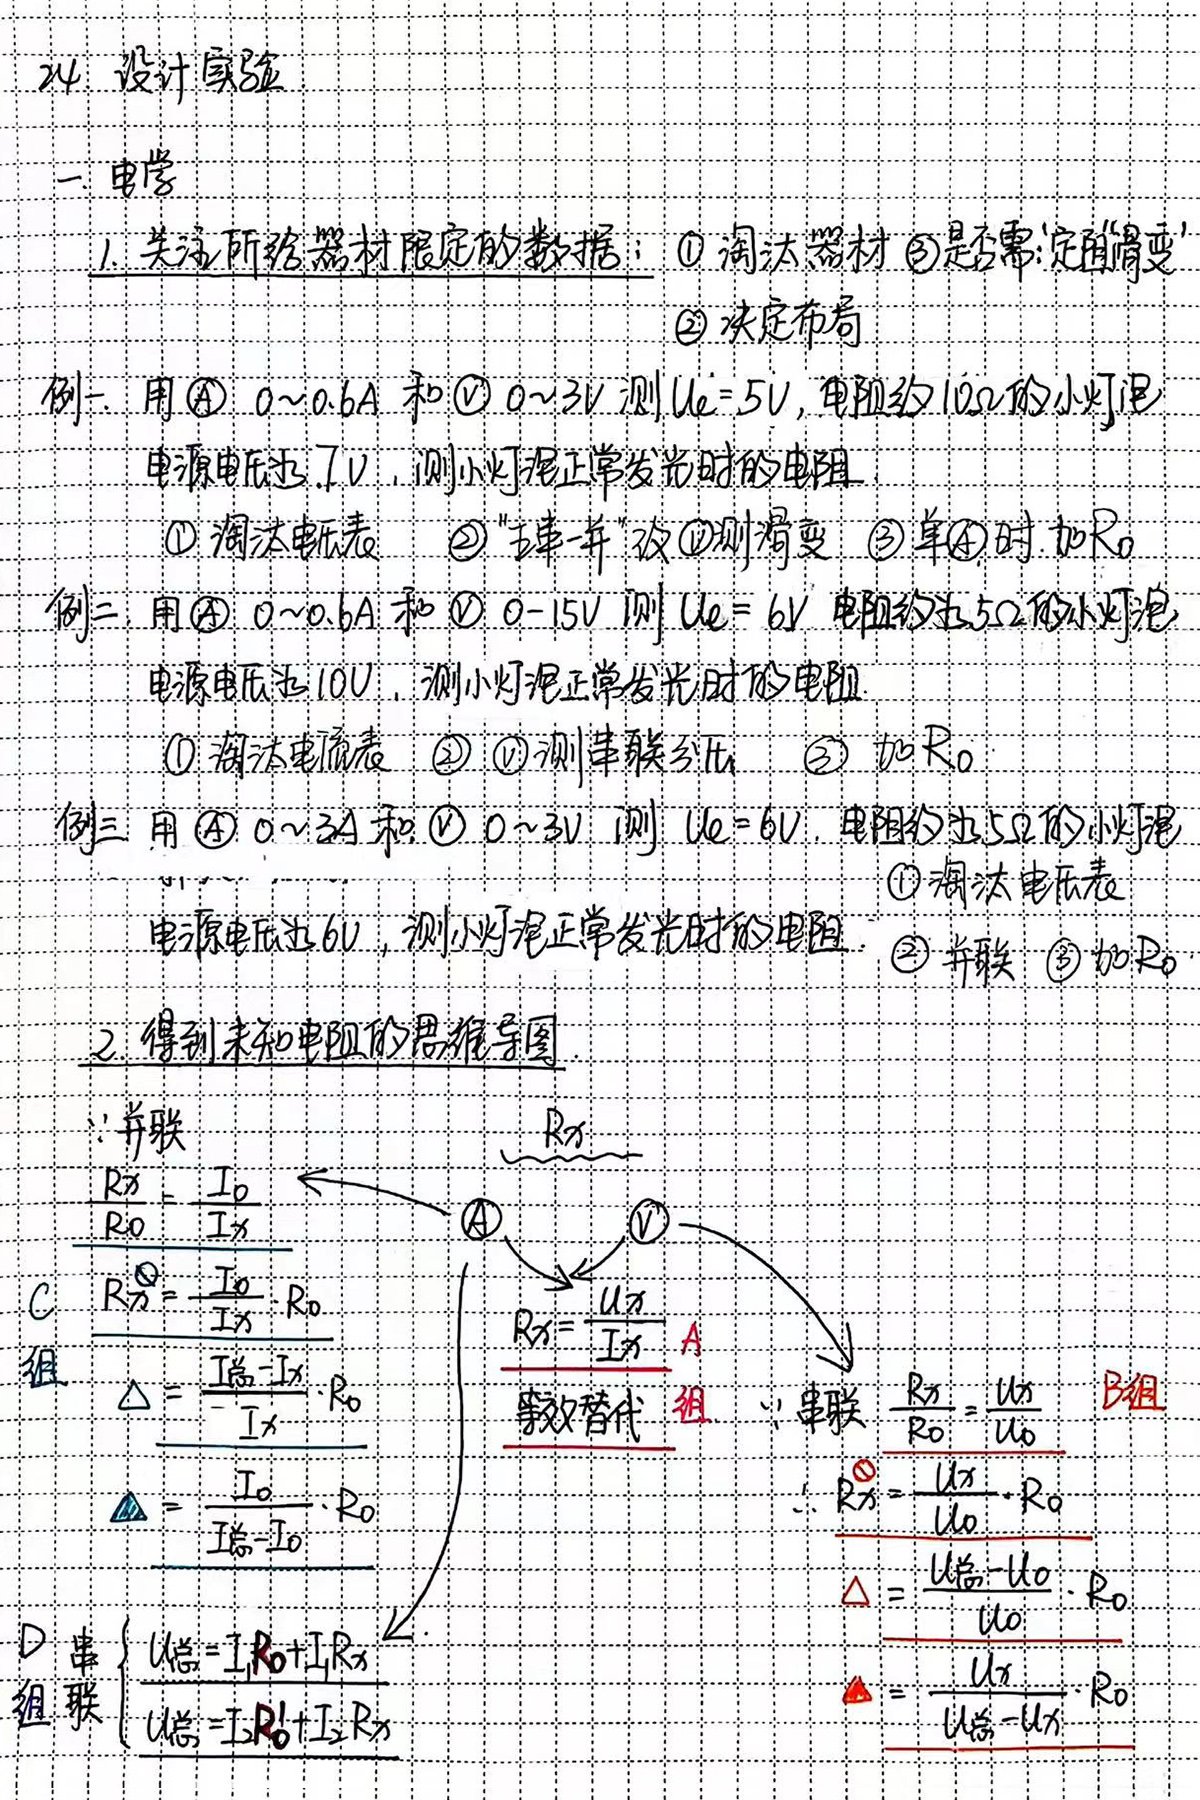 24. 设计实验
一. 电学
1. 关注所给器材限定的数据: ① 淘汰器材 ③是否需"定值""滑变"
② 决定布局
例一. 用Ⓐ 0~0.6A 和Ⓥ 0~3V 测 Ue=5V, 电阻约10Ω的小灯泡
电源电压为7V, 测小灯泡正常发光时的电阻.
① 淘汰电压表 ② "主串一并"改Ⓥ测滑变 ③ 单Ⓐ时 加R₀
例二. 用Ⓐ 0~0.6A 和Ⓥ 0-15V 测 Ue=6V 电阻约为5Ω的小灯泡
电源电压为10V, 测小灯泡正常发光时的电阻.
① 淘汰电流表 ② Ⓥ测串联分压 ③ 加R₀
例三 用Ⓐ 0~3A 和Ⓥ 0~3V 测 Ue=6V. 电阻约为5Ω的小灯泡
① 淘汰电压表
电源电压为6V, 测小灯泡正常发光时的电阻.
② 并联 ③ 加R₀
2. 得到未知电阻的思维导图.
Rx
Ⓐ Ⓥ
∵并联
Rx/R₀ = I₀/Ix
C组
Rx = I₀/Ix·R₀
△ = (I总-Ix)/Ix·R₀
▲ = I₀/(I总-I₀)·R₀
Rx = Ux/Ix
A组
等效替代
∵ 串联 Rx/R₀ = Ux/U₀
B组
∴ Rx = Ux/U₀·R₀
△ = (U总-U₀)/U₀·R₀
▲ = Ux/(U总-Ux)·R₀
D组 串联
U总=I₁R₀+I₁Rx
U总=I₂R₀'+I₂Rx